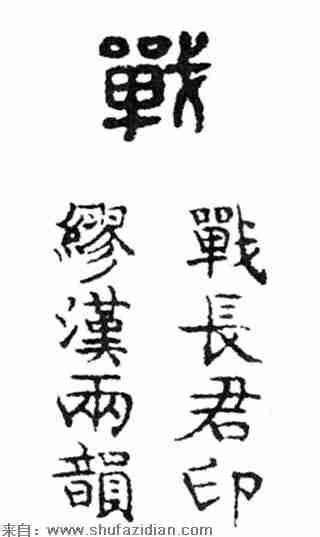 戰
戰長君印
繆漢兩韻
来自：www.shufazidian.com